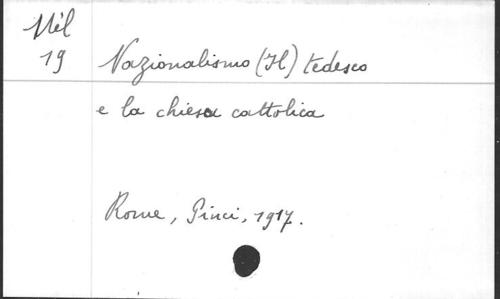 Mél
19
Nazionalismo (Il) tedesco
e la chiesa cattolica
Rome, Pinci, 1917.